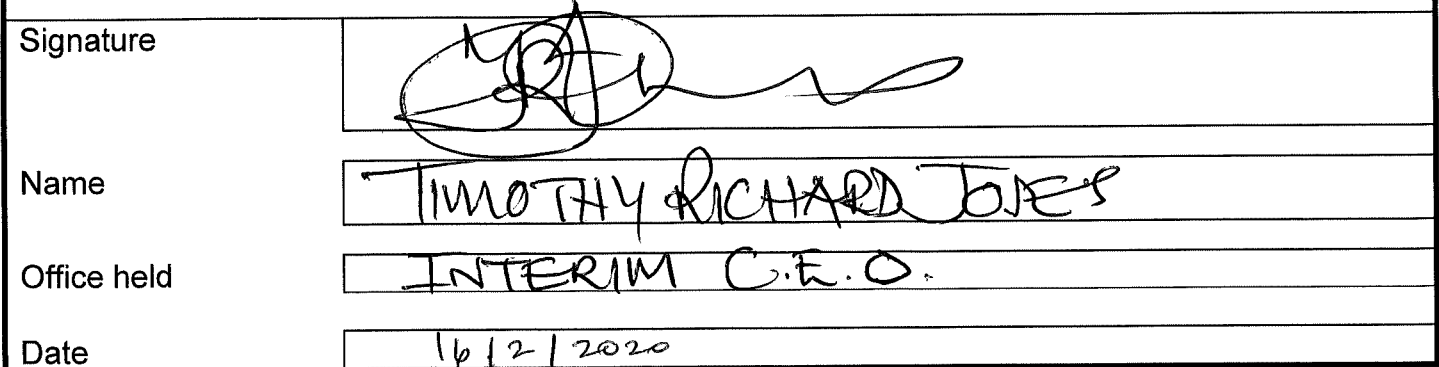 Signature
Name TIMOTHY RICHARD JONES
Office held INTERIM C.E.O.
Date 16/2/2020